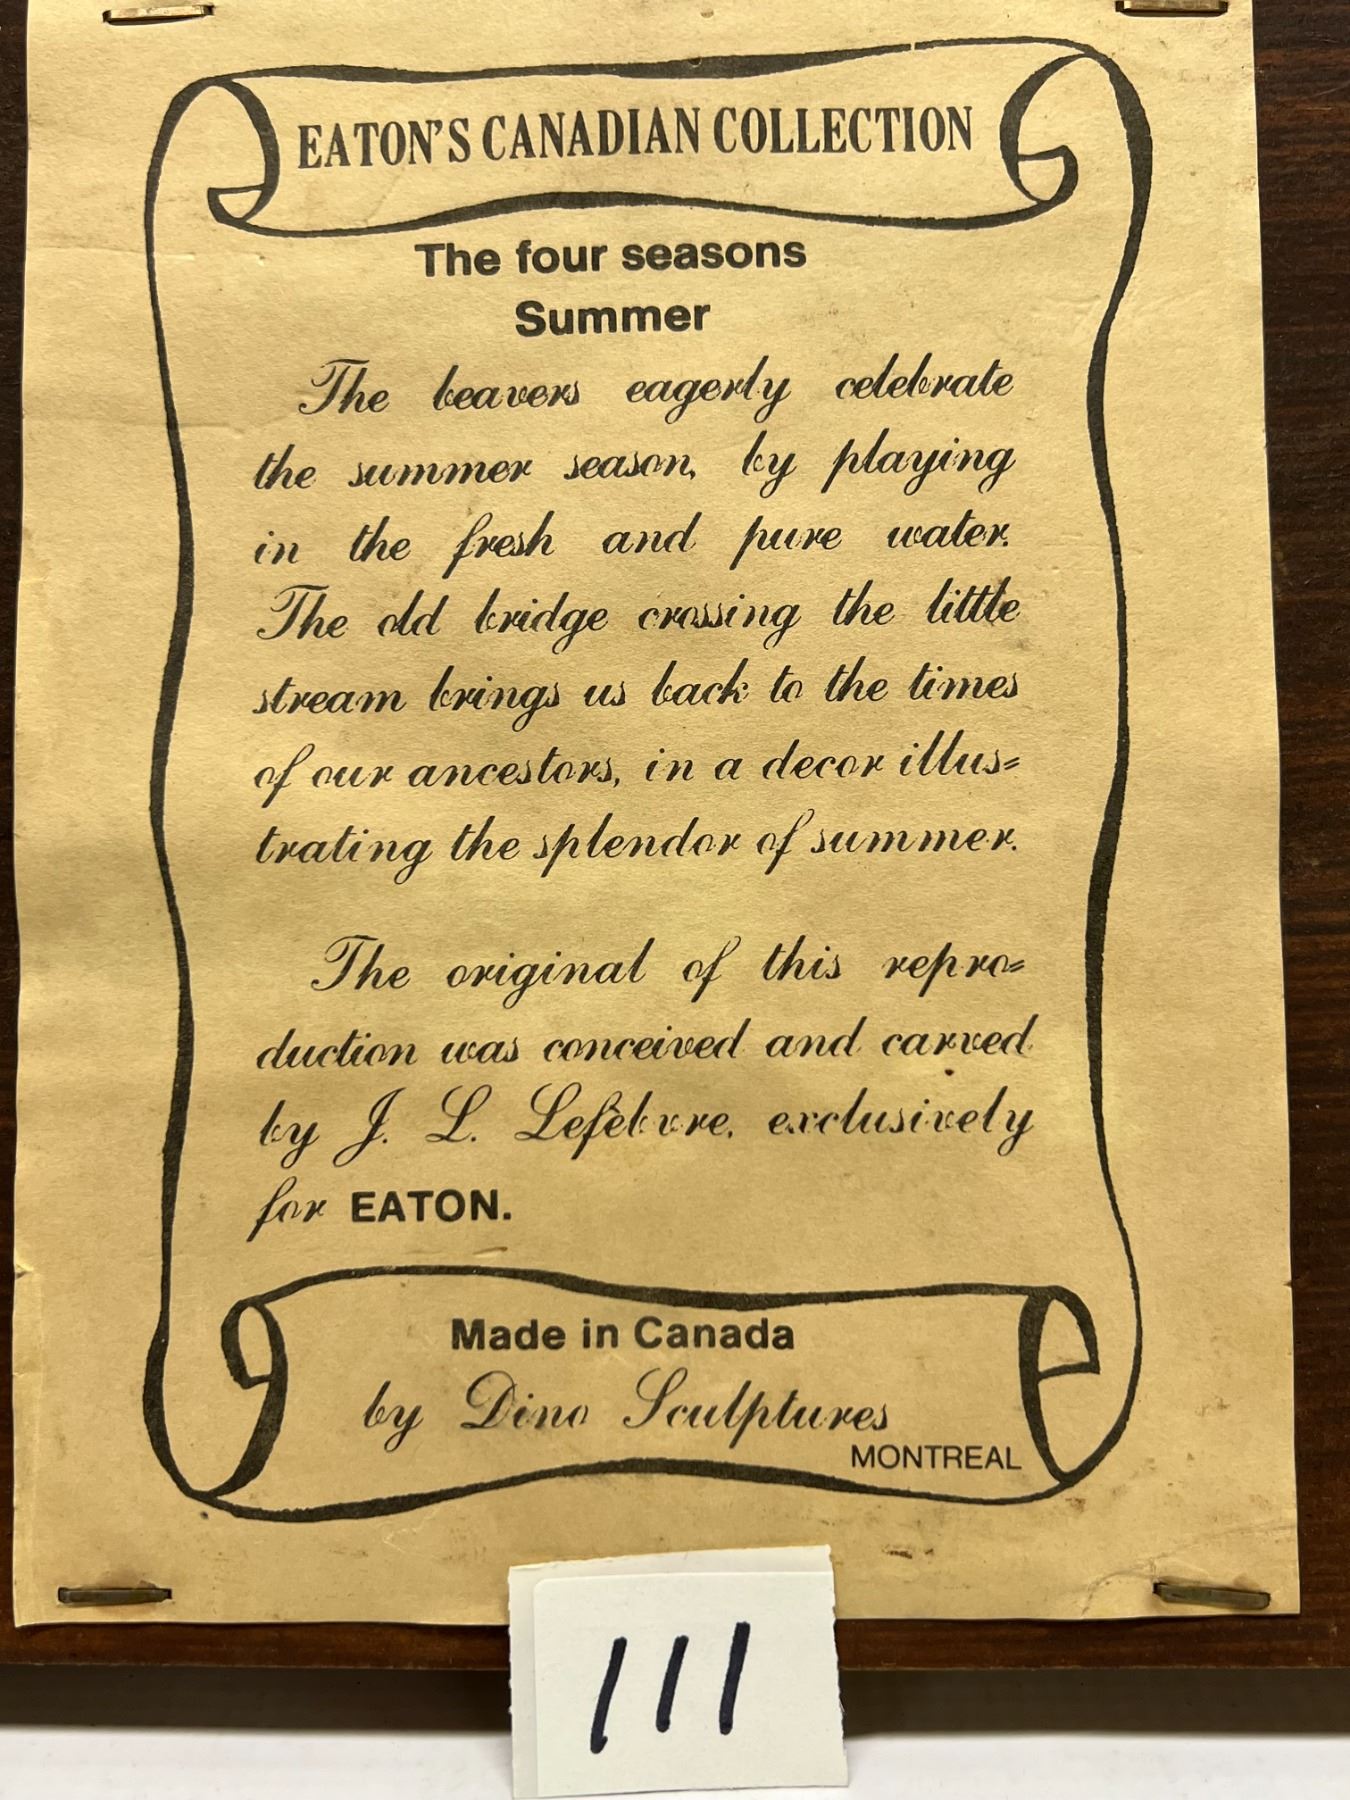 EATON'S CANADIAN COLLECTION
The four seasons
Summer
The beavers eagerly celebrate
the summer season, by playing
in the fresh and pure water.
The old bridge crossing the little
stream brings us back to the times
of our ancestors, in a decor illus=
trating the splendor of summer.
The original of this repro=
duction was conceived and carved
by J. L. Lefèbvre, exclusively
for EATON.
Made in Canada
by Dino Sculptures
MONTREAL
111